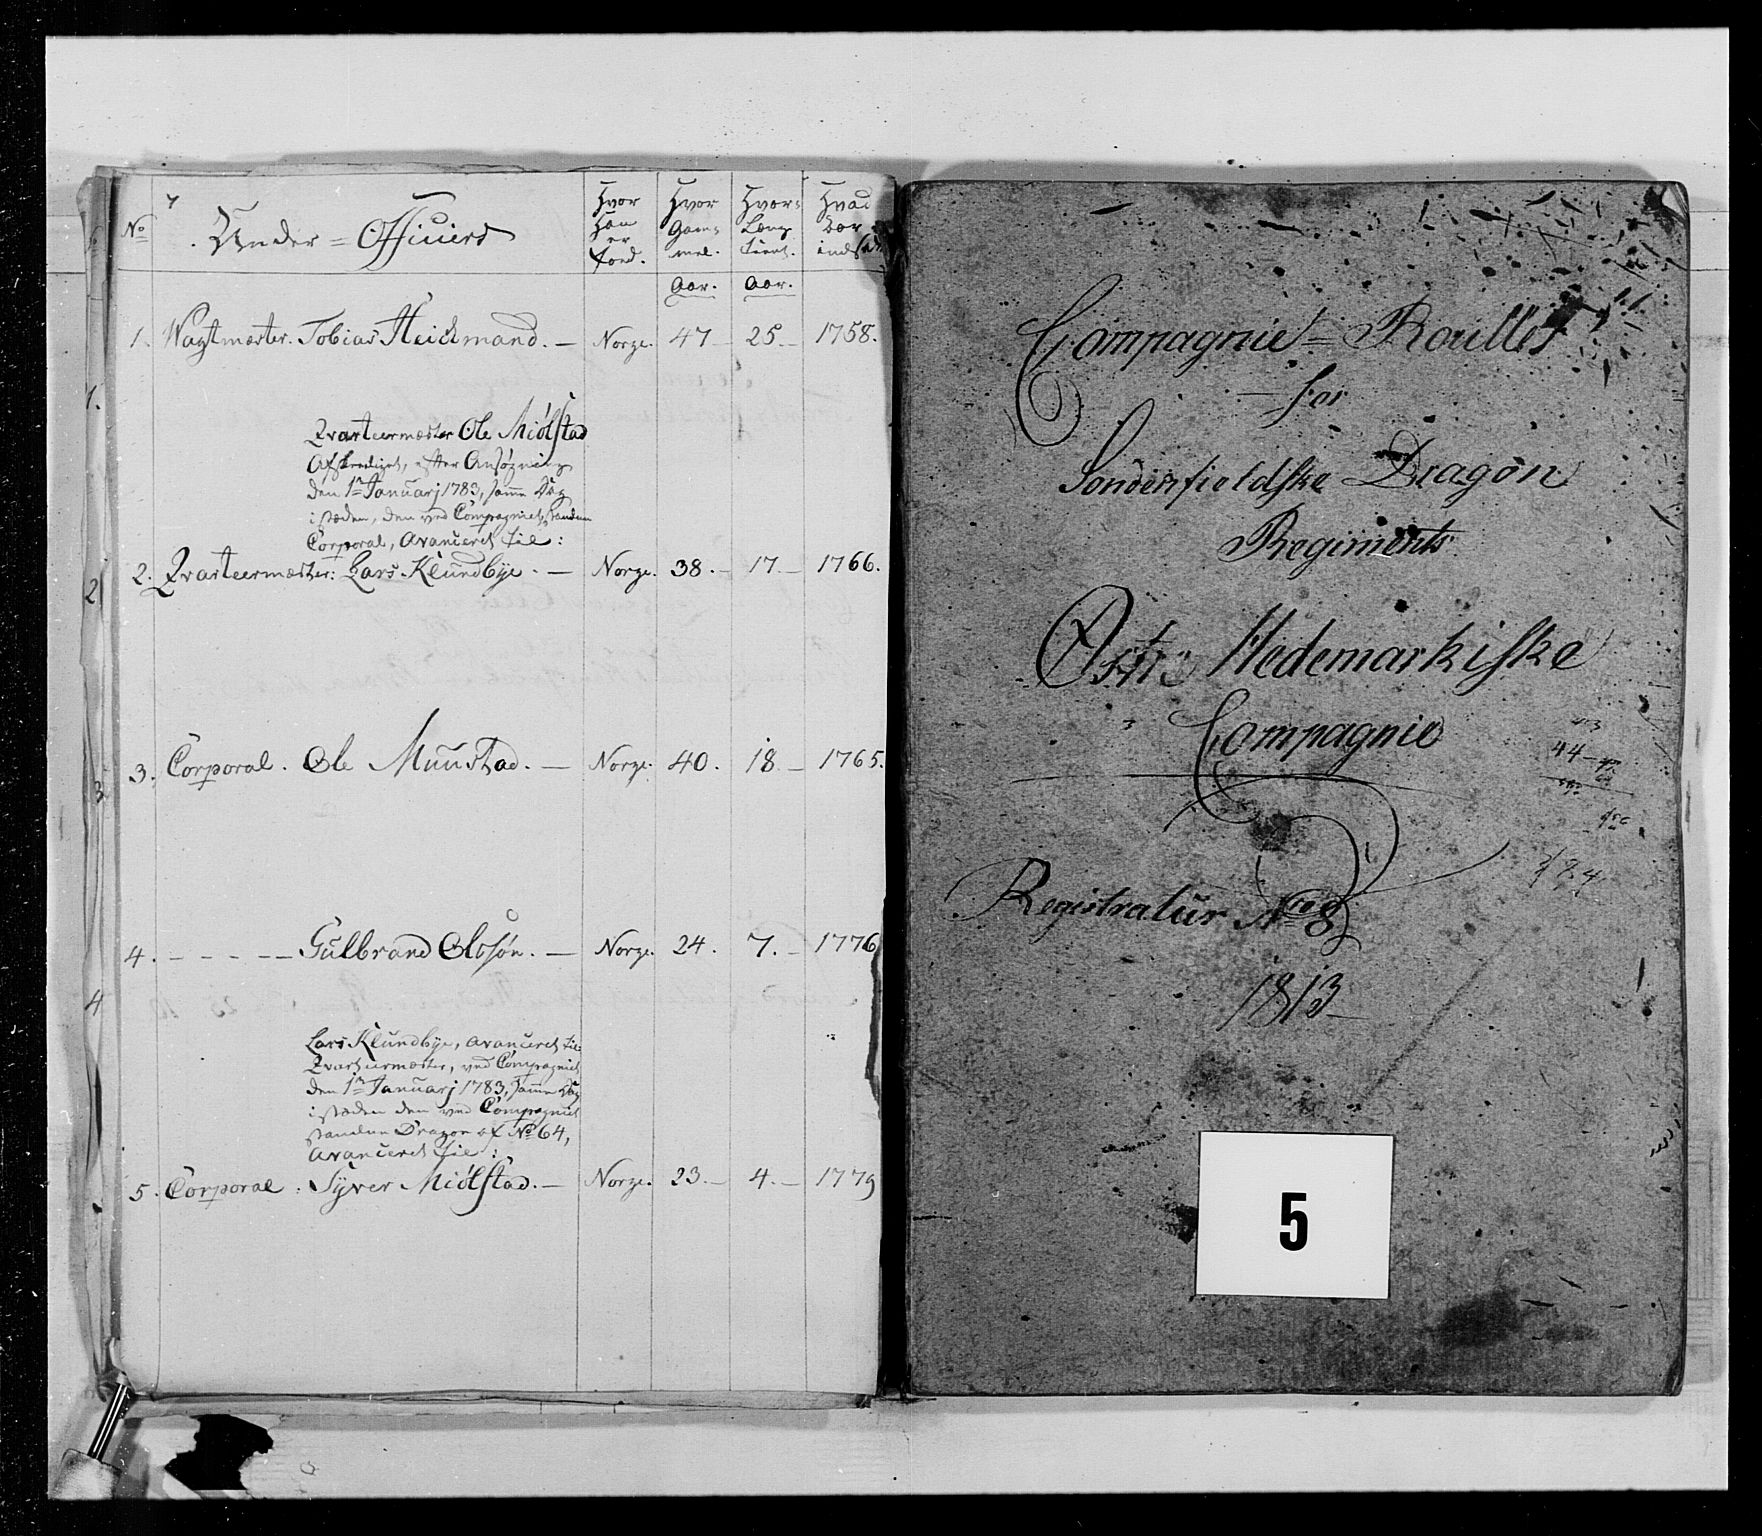 No
Under-Officiers
Hvor Han er fød.
Hvor Gammel. Aar.
Hvor Læng tient. Aar.
Hvad Aar
1. Wagtmæster. Tobias Heickmand. — Norge. 47 — 25. — 1758.
Qvarteermæster Ole Miölstad
Afskeediget, efter Ansøgning
den 1n Januarj 1783, samme Dag
istæden, den ved Compagniet standne
Corporal, Avanceret til:
2. Qvarteermæster: Lars Klundbye. — Norge. 38. — 17. — 1766.
3. Corporal. Ole Muustad. — Norge. 40. 18. — 1765.
4. – – – – – Gulbrand Olssøn. — Norge. 24. 7. — 1776
Lars Klundbye, avanceret til
Qvarteermæster, ved Compagniet
den 1n Januarj 1783, samme Dag
istæden den ved Compagniet
standne Dragon af No 64,
avanceret til:
5. Corporal: Syver Miölstad. — Norge. 23. — 4. — 1779
1.
2
3
4
Compagnie = Roulles
for
Søndenfieldske Dragon
Regiments
Østre Hedemarkiske
Compagnie
44
Registratur No 8
1813
5